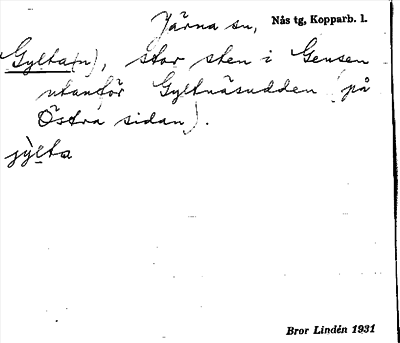 Järna sn, Nås tg, Kopparb. l.
Gylta(n), stor sten i Gensen
utanför Gyltnäsudden (på
Östra sidan).
jylta
Bror Lindén 1931